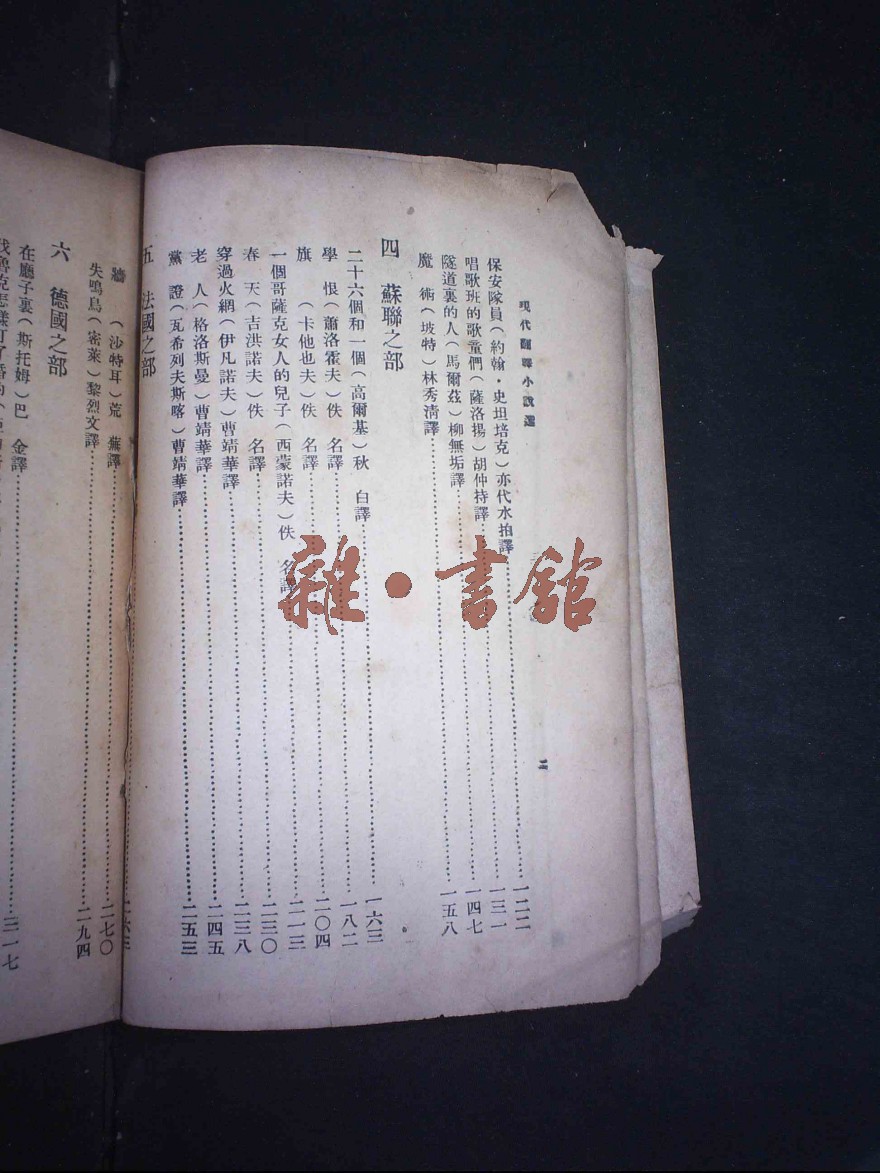 現代翻譯小說選
二
保安隊員（約翰・史坦培克）亦代水拍譯……一二二
唱歌班的歌童們（薩洛揚）胡仲持譯……一三一
隧道裏的人（馬爾茲）柳無垢譯……一四七
魔　術（坡特）林秀清譯……一五八
四　蘇聯之部
二十六個和一個（高爾基）秋　白譯……一六三
學　恨（蕭洛霍夫）佚　名譯……一八二
旗　（卡他也夫）佚　名譯……二〇四
一個哥薩克女人的兒子（西蒙諾夫）佚　名譯……二一三
春　天（吉洪諾夫）佚　名譯……二三〇
穿過火網（伊凡諾夫）曹靖華譯……二三八
老　人（格洛斯曼）曹靖華譯……二四五
黨　證（瓦希列夫斯喀）曹靖華譯……二五三
五　法國之部
二六三
牆　（沙特耳）荒　蕪譯……二七〇
失鳴鳥（密萊）黎烈文譯……二九四
六　德國之部
在廳子裏（斯托姆）巴　金譯……三一七
雜・書館